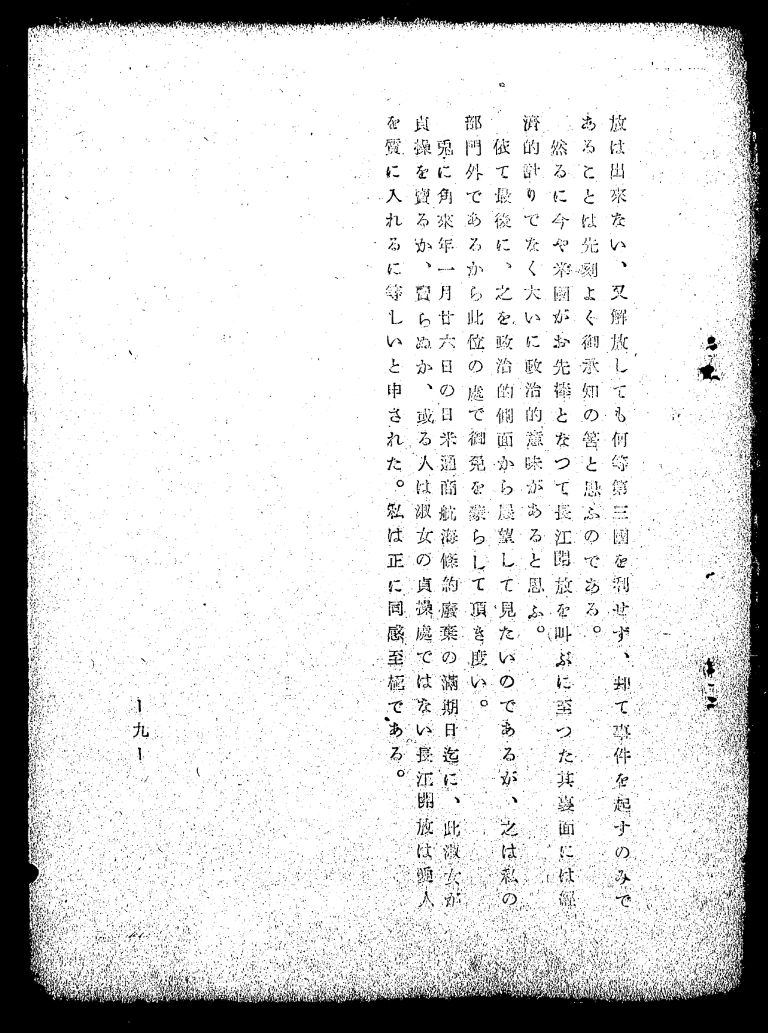 放は出來ない、又解放しても何等第三國を利せず、却て事件を起すのみで
あることは先刻よく御承知の筈と思ふのである。
然るに今や米國がお先棒となつて長江開放を叫ぶに至つた其裏面には經
濟的計りでなく大いに政治的意味があると思ふ。
依て最後に、之を政治的側面から展望して見たいのであるが、之は私の
部門外であるから此位の處で御免を蒙らして頂き度い。
兎に角來年一月廿六日の日米通商航海條約廢棄の滿期日迄に、此淑女が
貞操を賣るか、賣らぬか、或る人は淑女の貞操處ではない長江開放は
を質に入れるに等しいと申された。私は正に同感至極である。
ー九ー